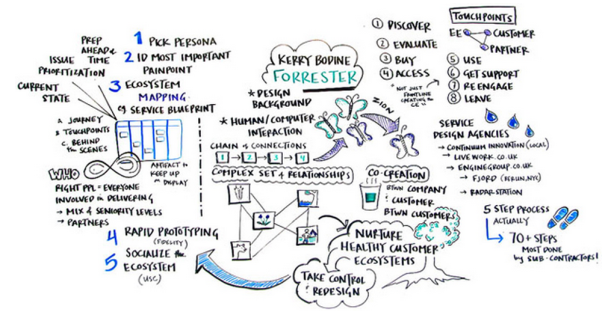 PREP
AHEAD of
TIME
ISSUE
PRIORITIZATION
CURRENT
STATE
1 PICK PERSONA
2 ID MOST IMPORTANT
PAINPOINT
3 ECOSYSTEM
MAPPING
SERVICE BLUEPRINT
A. JOURNEY
B. TOUCHPOINTS
C. BEHIND
THE SCENES
WHO
ARTIFACT to
KEEP UP
on DISPLAY
RIGHT PPL - EVERYONE
INVOLVED in DELIVERING
→ MIX & SENIORITY LEVELS
→ PARTNERS
4 RAPID PROTOTYPING
(FIDELITY)
5 SOCIALIZE the
ECOSYSTEM
KERRY BODINE
FORRESTER
* DESIGN
BACKGROUND
* HUMAN/COMPUTER
INTERACTION
CHAIN of CONNECTIONS
1 → 2 → 3 → 4
COMPLEX SET of RELATIONSHIPS
ZION
CO-CREATION
BTWN COMPANY
CUSTOMER
BTWN CUSTOMERS
NURTURE
HEALTHY CUSTOMER
ECOSYSTEMS
TAKE CONTROL
REDESIGN
1 DISCOVER
2 EVALUATE
3 BUY
4 ACCESS
* NOT JUST
FRONTLINE
TOUCHPOINTS
EE
CUSTOMER
PARTNER
5 USE
6 GET SUPPORT
7 REENGAGE
8 LEAVE
SERVICE
DESIGN AGENCIES
→ CONTINUUM INNOVATION (LOCAL)
→ LIVE WORK.CO.UK
→ ENGINEGROUP.CO.UK
→ FJORD (BERLIN, NYC)
→ RADARSTATION
5 STEP PROCESS
ACTUALLY
70+ STEPS
MOST DONE
by SUB-CONTRACTORS!